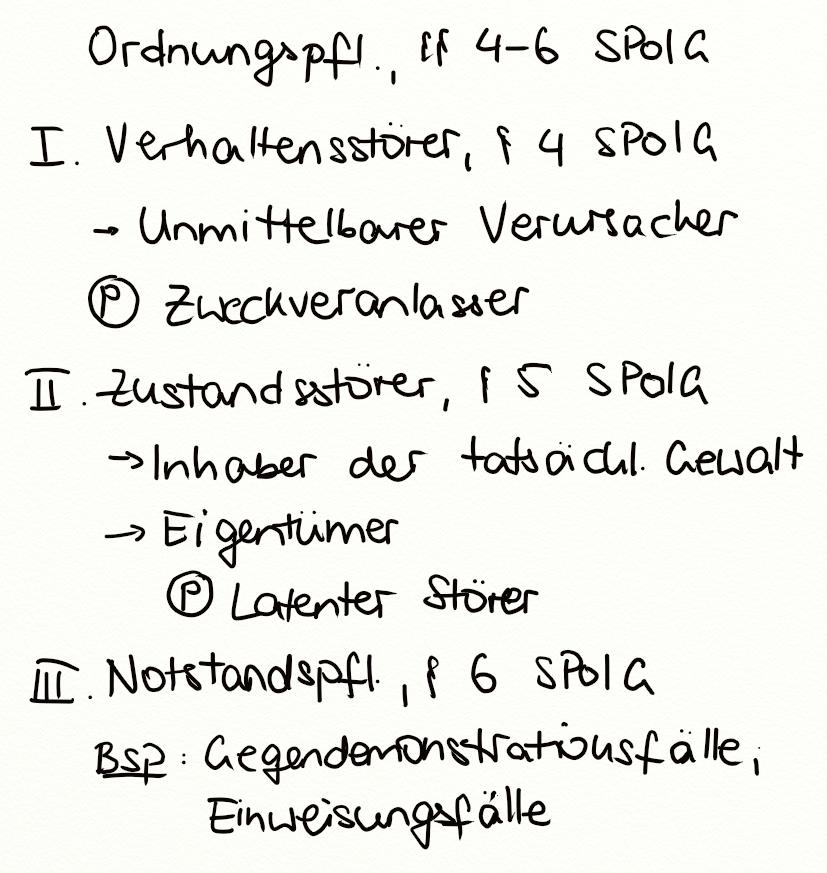 Ordnungspfl., §§ 4-6 SPolG
I. Verhaltensstörer, § 4 SPolG
→ Unmittelbarer Verursacher
Ⓟ Zweckveranlasser
II. Zustandsstörer, § 5 SPolG
→ Inhaber der tatsächl. Gewalt
→ Eigentümer
Ⓟ Latenter Störer
III. Notstandspfl., § 6 SPolG
Bsp: Gegendemonstrationsfälle,
Einweisungsfälle